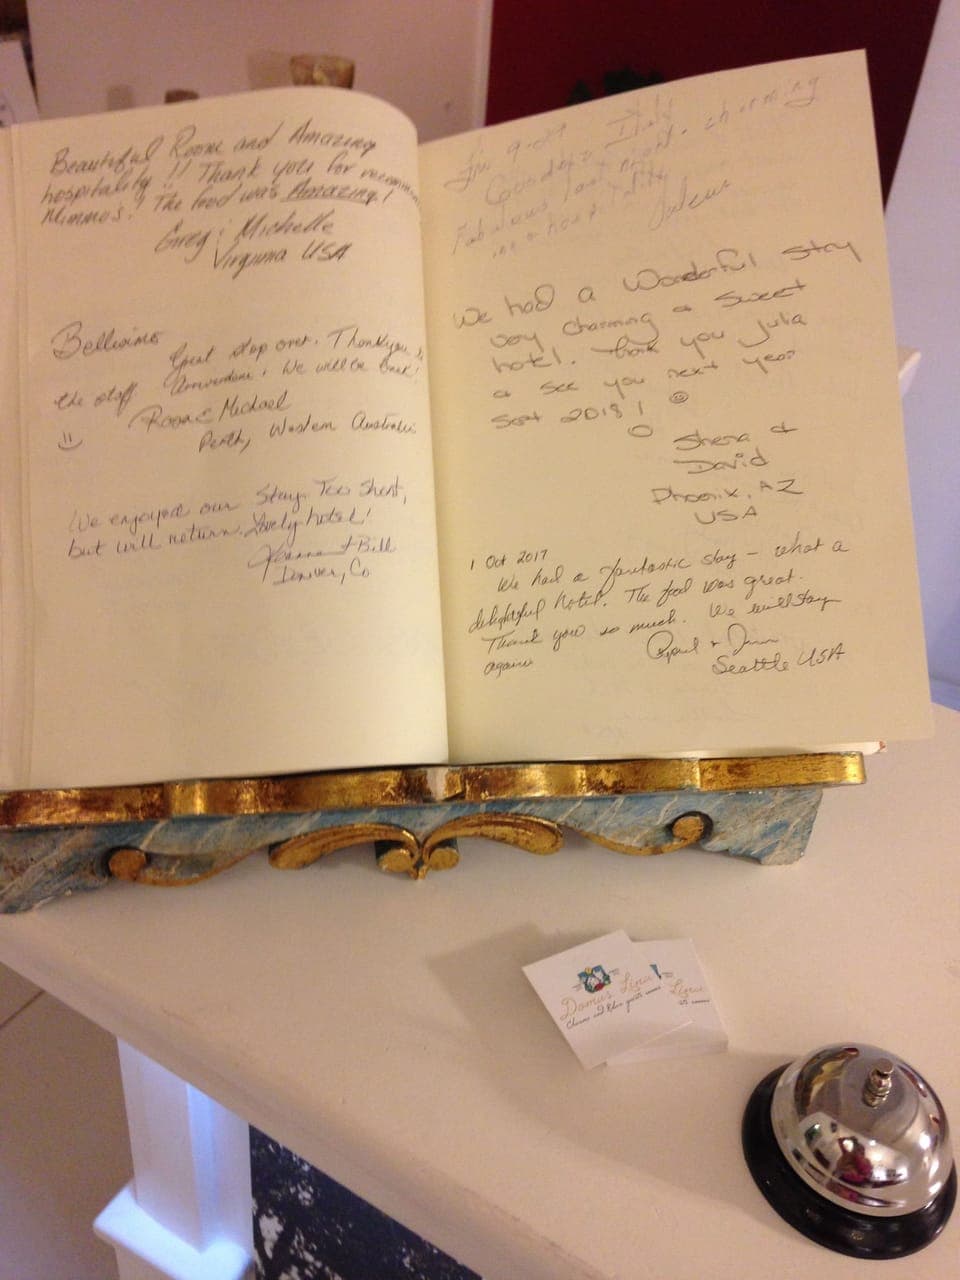 Beautiful Room and Amazing
hospitality!! Thank you for
Mimmo's! The food was Amazing!
Greg & Michelle
Virginia USA
Bellisimo
Great stop over. Thank you
the staff We will be back!
& Michael
Perth, Western Australia
We enjoyed our Stay. Too Short,
but will return. Lovely hotel!
& Bill
Denver, Co
Fabulous last night. charming
We had a Wonderful Stay
very Charming & Sweet
hotel. Thank you Julia
& See you next year
Sept 2018!
Shera &
David
Phoenix, AZ
USA
1 Oct 2017
We had a fantastic stay – what a
delightful hotel. The food was great.
Thank you so much. We will stay
again
April &
Seattle USA
Domus Lina
Charme and Relax guests rooms
Lina